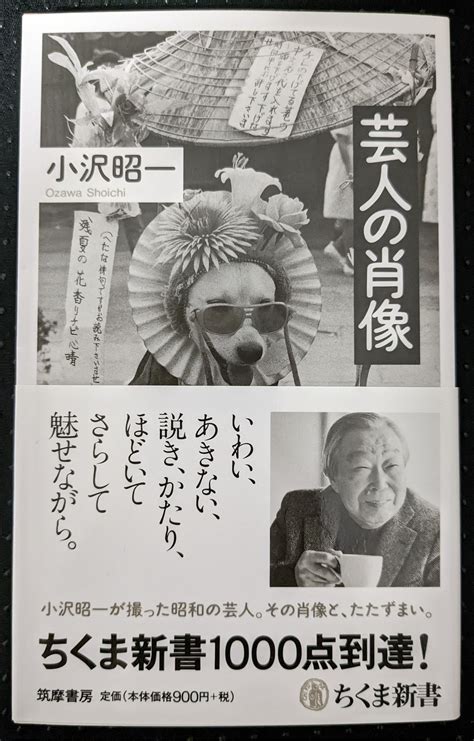 小沢昭一
Ozawa Shoichi
芸人の肖像
(へたな俳句ですがお読み下さいませ
残夏の花香りナビ心晴
いわい、
あきない、
説き、かたり、
ほどいて
さらして
魅せながら。
小沢昭一が撮った昭和の芸人。その肖像と、たたずまい。
ちくま新書1000点到達!
筑摩書房 定価(本体価格900円+税)
ちくま新書